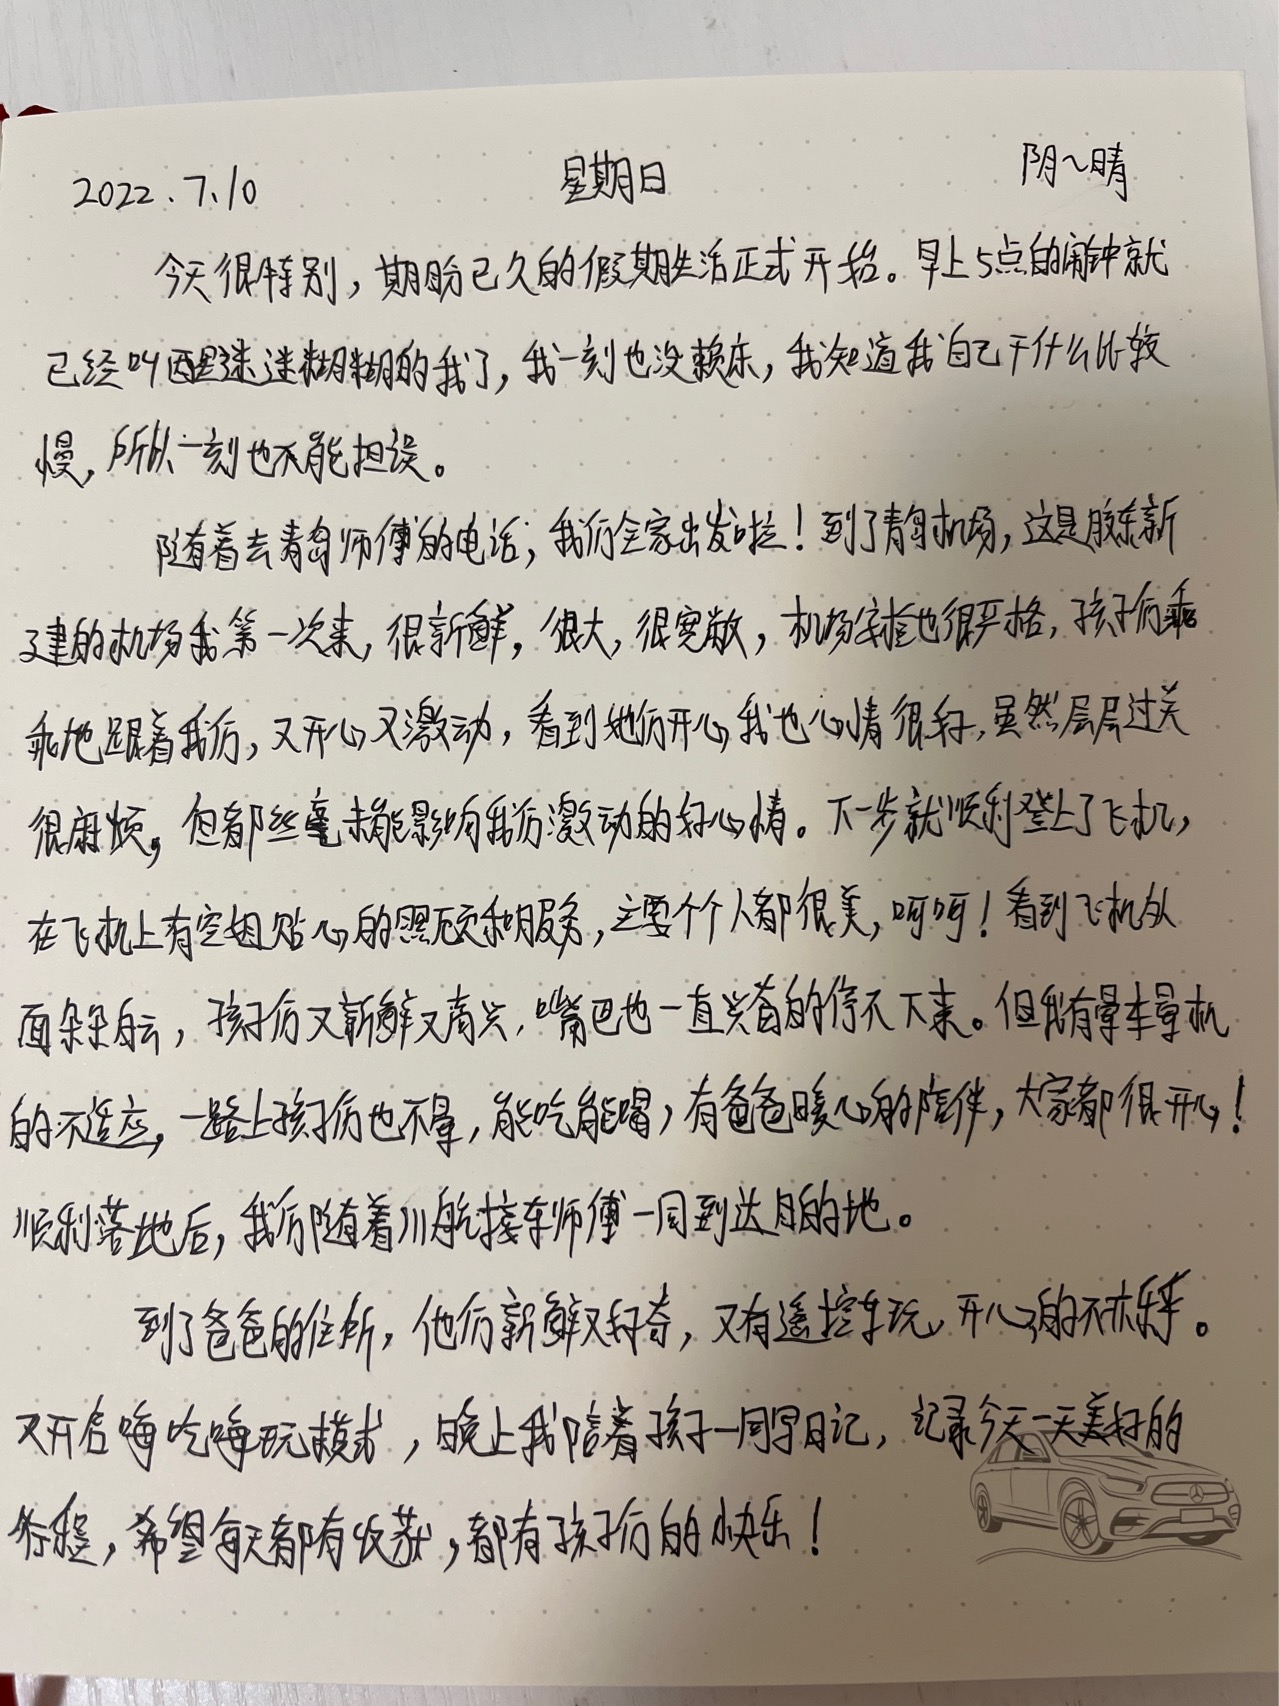 2022.7.10 星期日 阴~晴
今天很特别，期盼已久的假期生活正式开始。早上5点的闹钟就
已经叫醒迷迷糊糊的我了，我一刻也没赖床，我知道我自己干什么比较
慢，所以一刻也不能担误。
随着去青岛师傅的电话，我们全家出发啦！到了青岛机场，这是胶东新
建的机场我第一次来，很新鲜，很大，很宽敞，机场安检也很严格，孩子们乖
乖地跟着我们，又开心又激动，看到她们开心我也心情很好，虽然层层过关
很麻烦，但都丝毫未能影响我们激动的好心情。下一步就顺利登上了飞机，
在飞机上有空姐贴心的照顾和服务，主要个个人都很美，呵呵！看到飞机外
面朵朵白云，孩子们又新鲜又高兴，嘴巴也一直兴奋的停不下来。但我有晕车晕机
的不适应，一路上孩子们也不晕，能吃能喝，有爸爸暖心的陪伴，大家都很开心！
顺利落地后，我们随着川航接车师傅一同到达目的地。
到了爸爸的住所，他们新鲜又好奇，又有遥控车玩，开心的不亦乐乎。
又开启嗨吃嗨玩模式，晚上我陪着孩子一同写日记，记录今天一天美好的
行程，希望每天都有收获，都有孩子们的快乐！